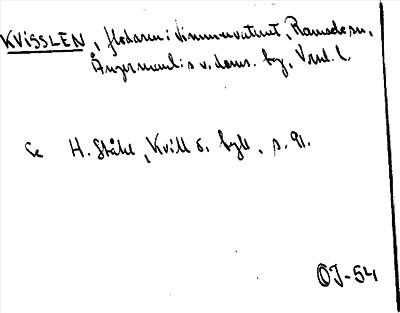 KVISSLEN, flodarm i Vimmervattnet, Ramsele sn,
Ångermanl:s v. doms. by, Vnl. l.
Se H. Ståhl, Kvill o. byll, s. 91.
OJ-54